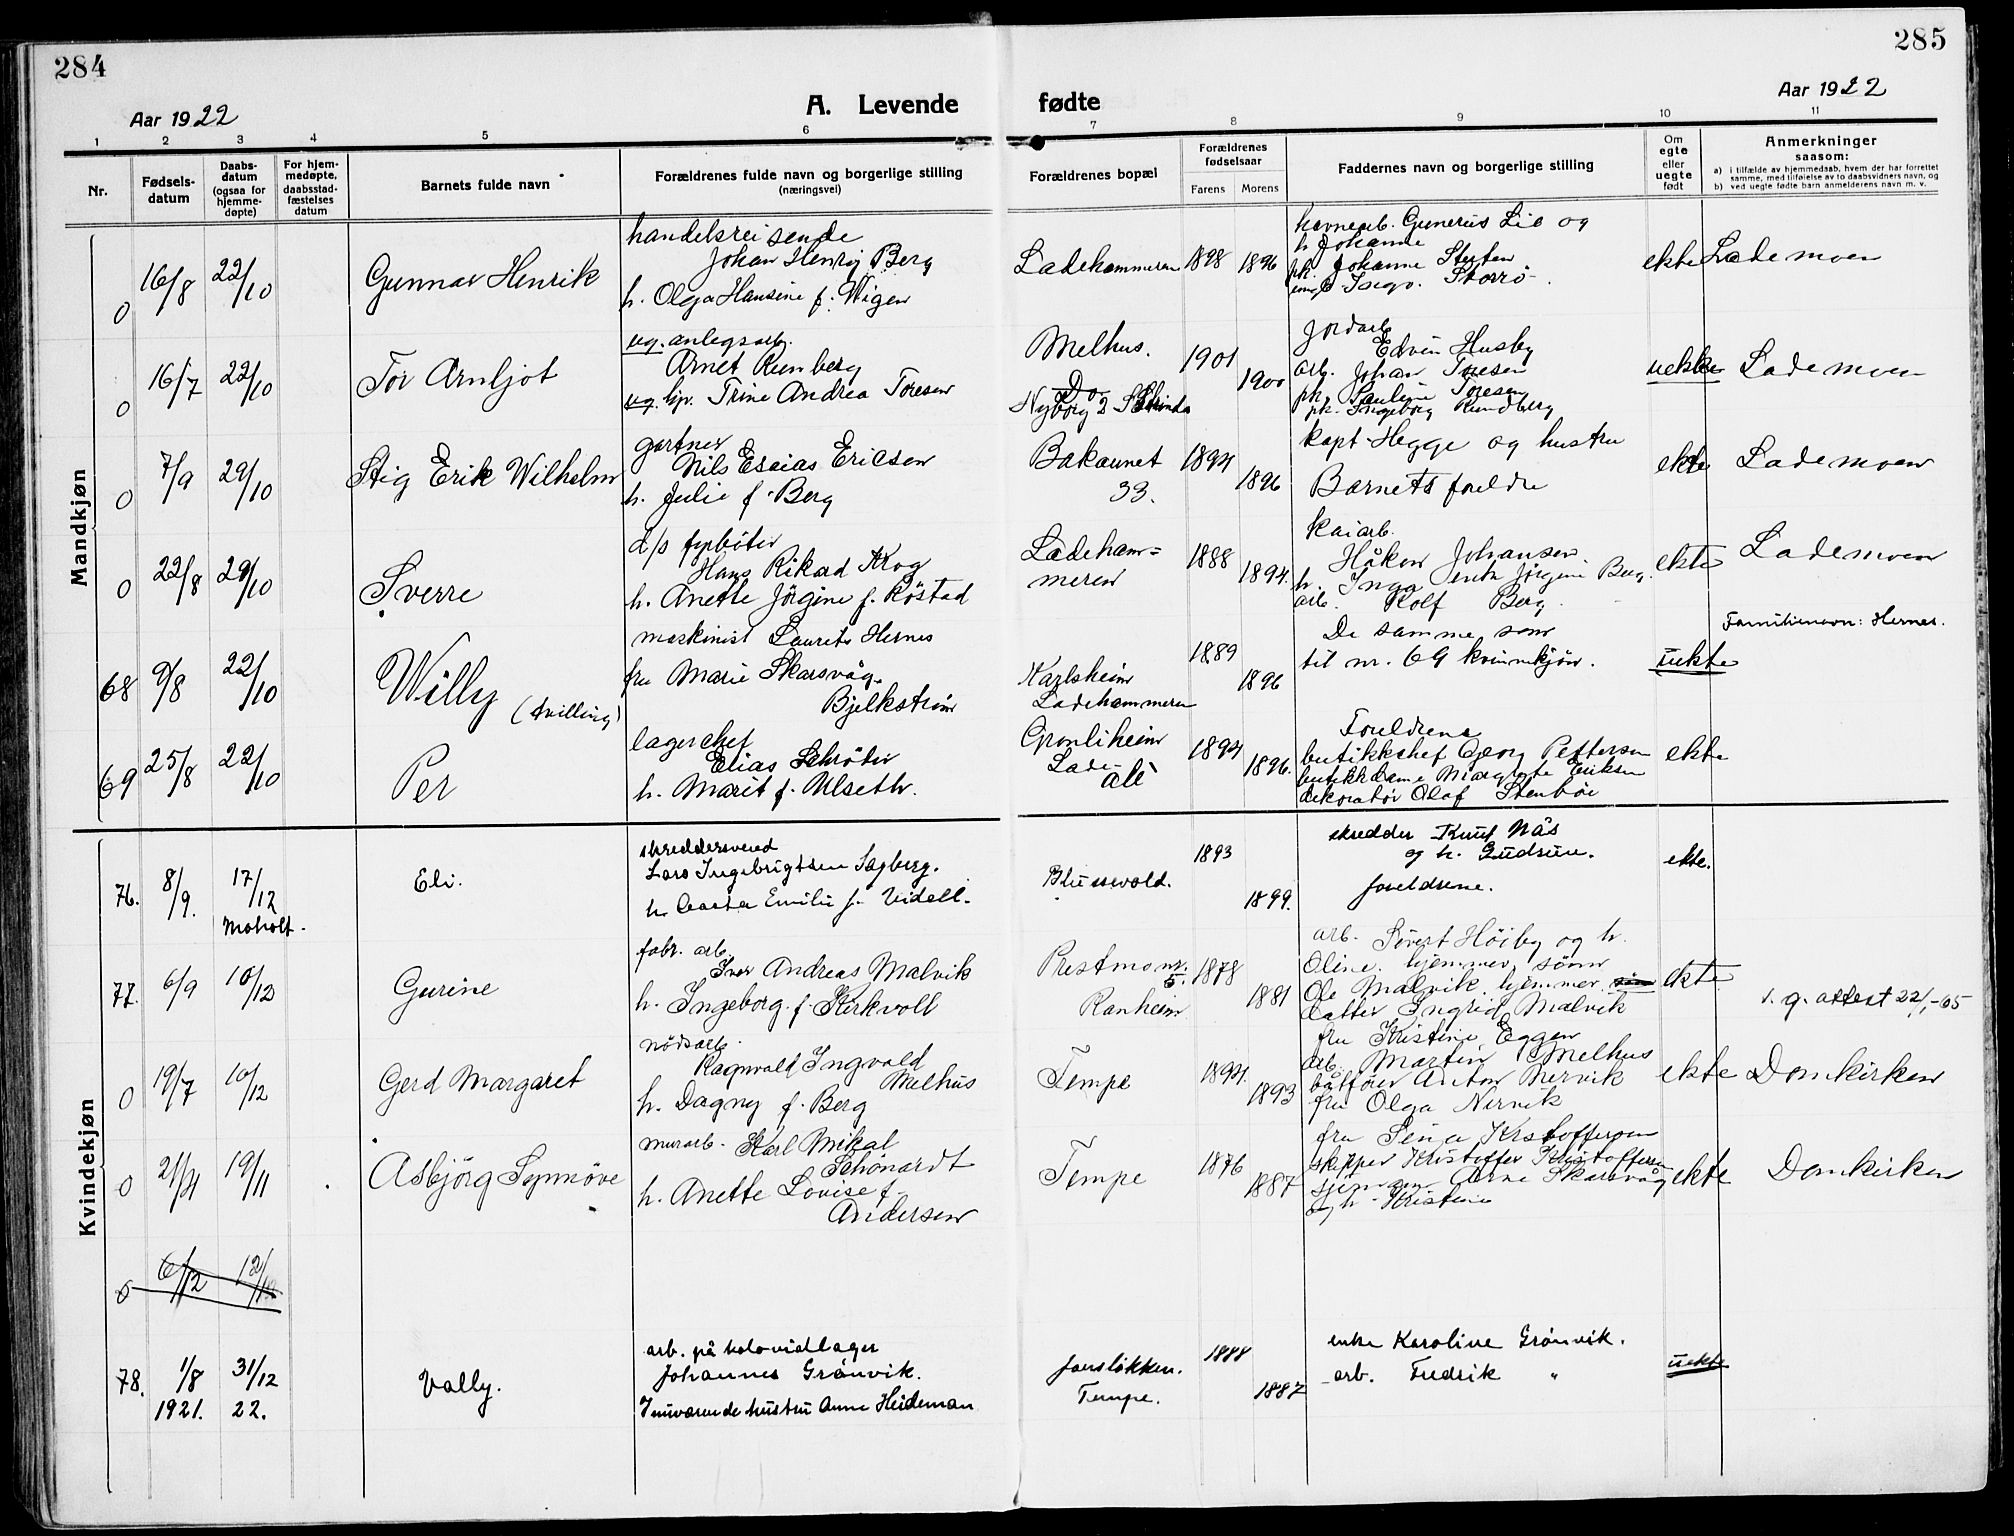 284
285
Aar 1922
A. Levende
fødte
Aar 1922
1 2 3 4 5 6 7 8 9 10 11
Nr.
Fødsels-
datum
Daabs-
datum
(ogsaa for
hjemme-
døpte)
For hjem-
medøpte,
daabsstad-
fæstelses
datum
Barnets fulde navn
Forældrenes fulde navn og borgerlige stilling
(næringsvei)
Forældrenes bopæl
Forældrenes
fødselsaar
Farens Morens
Faddernes navn og borgerlige stilling
Om
egte
eller
uegte
født
Anmerkninger
saasom:
a) i tilfælde av hjemmedaab, hvem der har forrettet
samme, med tilføielse av to daabsvidners navn, og
b) ved uegte fødte barn anmelderens navn m. v.
Mandkjøn
0 16/8 22/10
Gunnar Henrik
handelsreisende
Johan Henrij Berg
h. Olga Hansine f. Wigen
Ladehammeren
1898 1896
havnearb. Gunerius Lio og
h Johanne
pk. Johanne Sterten
Ingv. Storrö
ekte
Lademoen
0 16/7 22/10
Tor Arnljot
ug. anlegsarb.
Arnet Rumberg
ug. hjv. Trine Andrea Toresen
Melhus.
Do
Nyborg 2 Strinda
1901 1900
jordarb
Edvin Husby
arb. Johan Toresen
pk. Pauline Toresen
pk. Ingeborg Rundberg
uekte
Lademoen
0 7/9 29/10
Stig Erik Wilhelm
gartner
Nils Esaias Ericson
h. Julie f. Berg
Bakaunet
33.
1894 1896
kapt Hegge og hustru
Barnets foreldre
ekte
Lademoen
0 22/8 29/10
Sverre
d/s fyrböter
Hans Rikard Krog
h. Anette Jörgine f. Röstad
Ladeham=
meren
1888 1894.
kaiarb.
Håkon Johansen
h. Inga enke Jörgine Berg.
arb. Rolf Berg
ekte
Lademoen
68 9/8 22/10
Willy
(tvilling)
maskinist Laurits Hernes
fru Marie Skarsvåg
Bjelkström
Karlsheim
Ladehammeren
1889 1896
De samme som
til nr. 69 kvinnekjön.
uekte
Familienavn: Hernes.
69 25/8 22/10
Per
lagerchef
Elias Schröter
h. Marit f. Ulseth.
Gronliheim
Lade
alé
1894 1896.
Foreldrene
butikkchef Georg Pettersen
butikkdame Margrete Eriksen
dekoratör Olaf Stenböe
ekte
Kvindekjøn
76. 8/9. 17/12
Moholt.
Eli.
skreddersvend
Lars Ingebrigtsen Sagberg.
h. Marta Emilie f. Videll.
Blussevold.
1893 1899.
skredder Knut Nås
og h. Gudrun.
foreldrene.
ekte.
77. 6/9 10/12
Gurine
fabr. arb.
Iver Andreas Malvik
h. Ingeborg f. Kirkvoll
Prestmonr.
5.
Ranheim
1878 1881
arb. Sivert Höiby og h.
Oline. hjemmev. sönn
Ole Malvik. hjemmev.
datter Ingrid Malvik
ekte
v. g. attest 22/1-05
0 19/7 10/12
Gerd Margaret
nödsarb.
Ragnvald Ingvald
Melhus
h. Dagny f. Berg
Tempe
1894. 1893
fru Kristine Eggen
arb. Martin Melhus
båtförer Anton Nervik
fru Olga Nervik
ekte
Domkirken
0 21/4 19/11
Asbjörg Synnöve
murarb. Karl Mikal
Schönardt
h. Anette Lovise f.
Andersen
Tempe
1876 1887
fru Sina Kristoffersen
skipper Kristoffer Kristoffersen
sjömann Arne Skarsvåg
og h. Kristine
ekte
Domkirken
0 6/12
78. 1/8 31/12
1921. 22.
Vally.
arb. på kolonidlager
Johannes Grönvik.
Inuværende hustru Anne Heideman
Jonsløkken.
Tempe.
1888 1887
enke Karoline Grönvik.
arb. Fredrik "
uekte